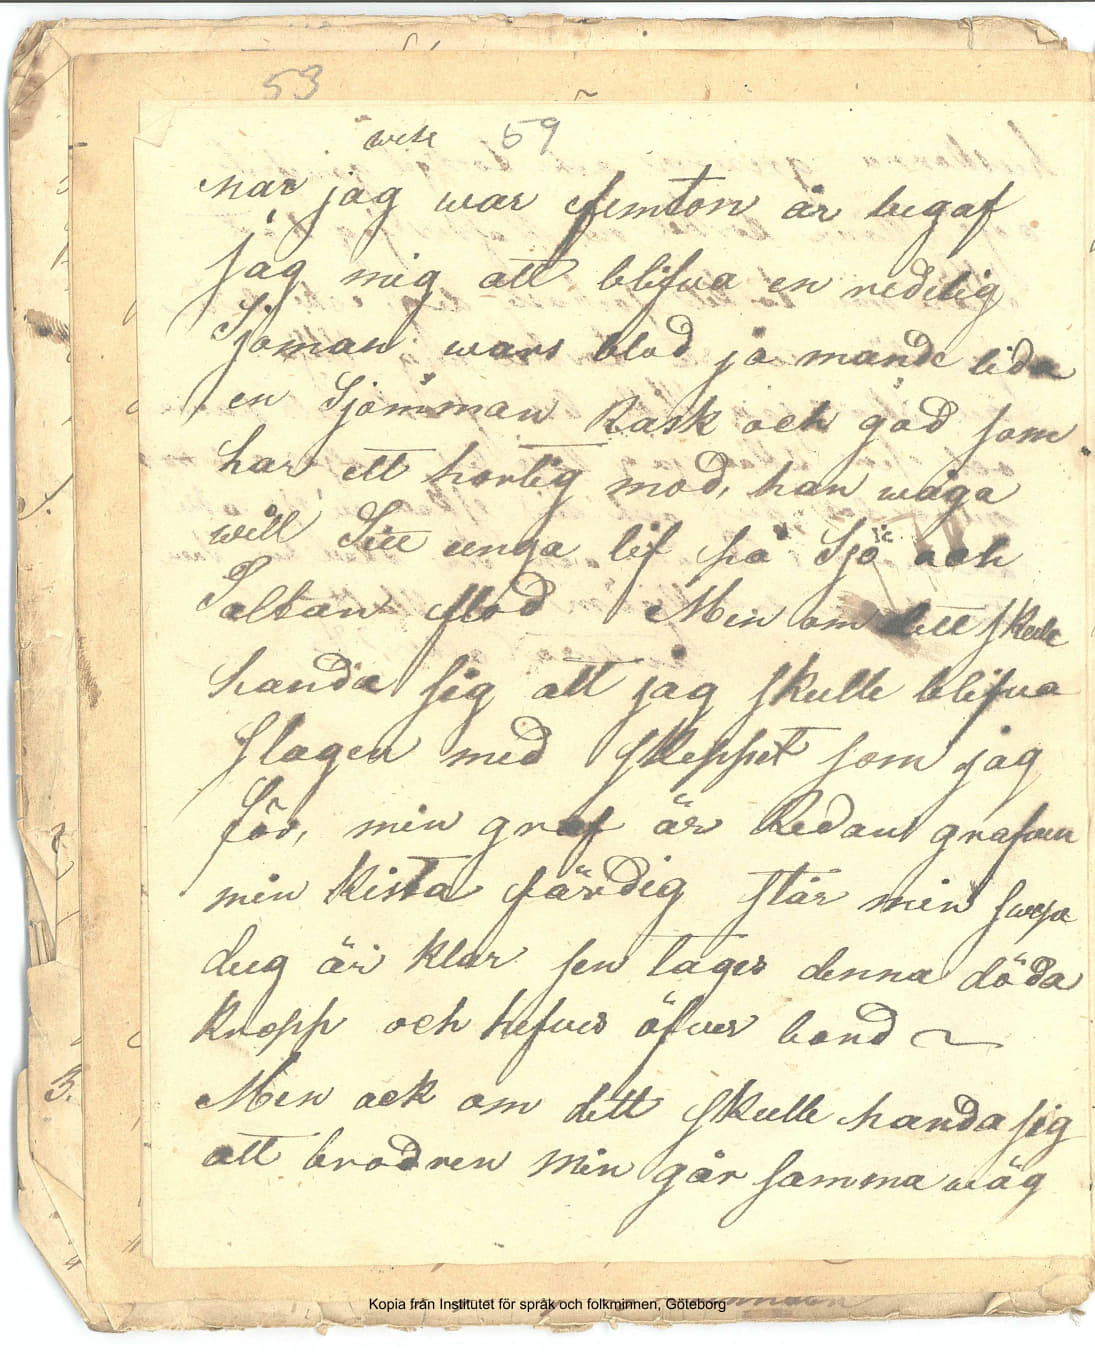 53
wisa 59
nar jag war femton år begaf
jag mig att blifwa en redelig
Sjoman wars blod ja mande lida
en Sjömman Rask och god som
har ett hortig mod, han wåga
will Sitt unga lif på Sjö och
Saltan flod Men om dett skule
handa sig att jag skulle blifwa
slagen med skeppet som jag
för, min graf är Redan grafwen
min kista färdig står min swepe
dug är klar sen tages denna döda
kropp och hefwes öfwer bord
Men ack om dett skulle handa sig
att brodren min går samma wäg
Kopia från Institutet för språk och folkminnen, Göteborg